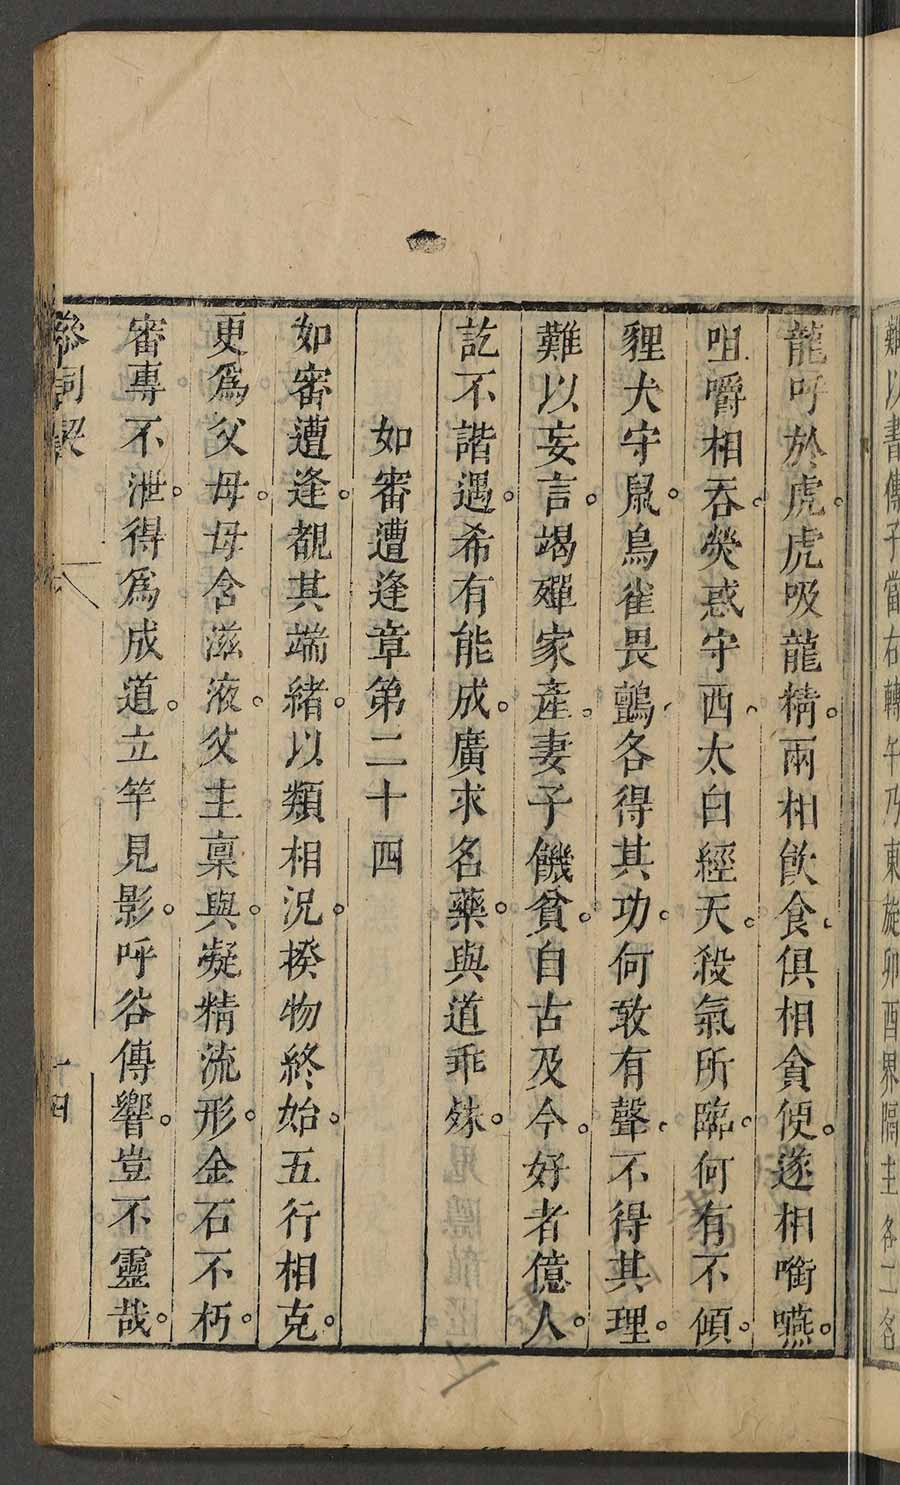 難以書傳子當右轉午乃東旋卯酉界隔主客二名
龍呼於虎。虎吸龍精。兩相飲食。俱相貪便。遂相啣嚥。
咀嚼相吞。熒惑守西。太白經天。殺氣所臨。何有不傾。
貍犬守鼠。鳥雀畏鸇。各得其功。何敢有聲。不得其理。
難以妄言。竭殫家產。妻子饑貧。自古及今。好者億人。
訖不諧遇。希有能成。廣求名藥。與道乖殊。
如審遭逢章第二十四
如審遭逢。覩其端緒。以類相況。揆物終始。五行相克。
更爲父母。母含滋液。父主稟與。凝精流形。金石不朽。
審專不泄。得爲成道。立竿見影。呼谷傳響。豈不靈哉。
參同契
十四